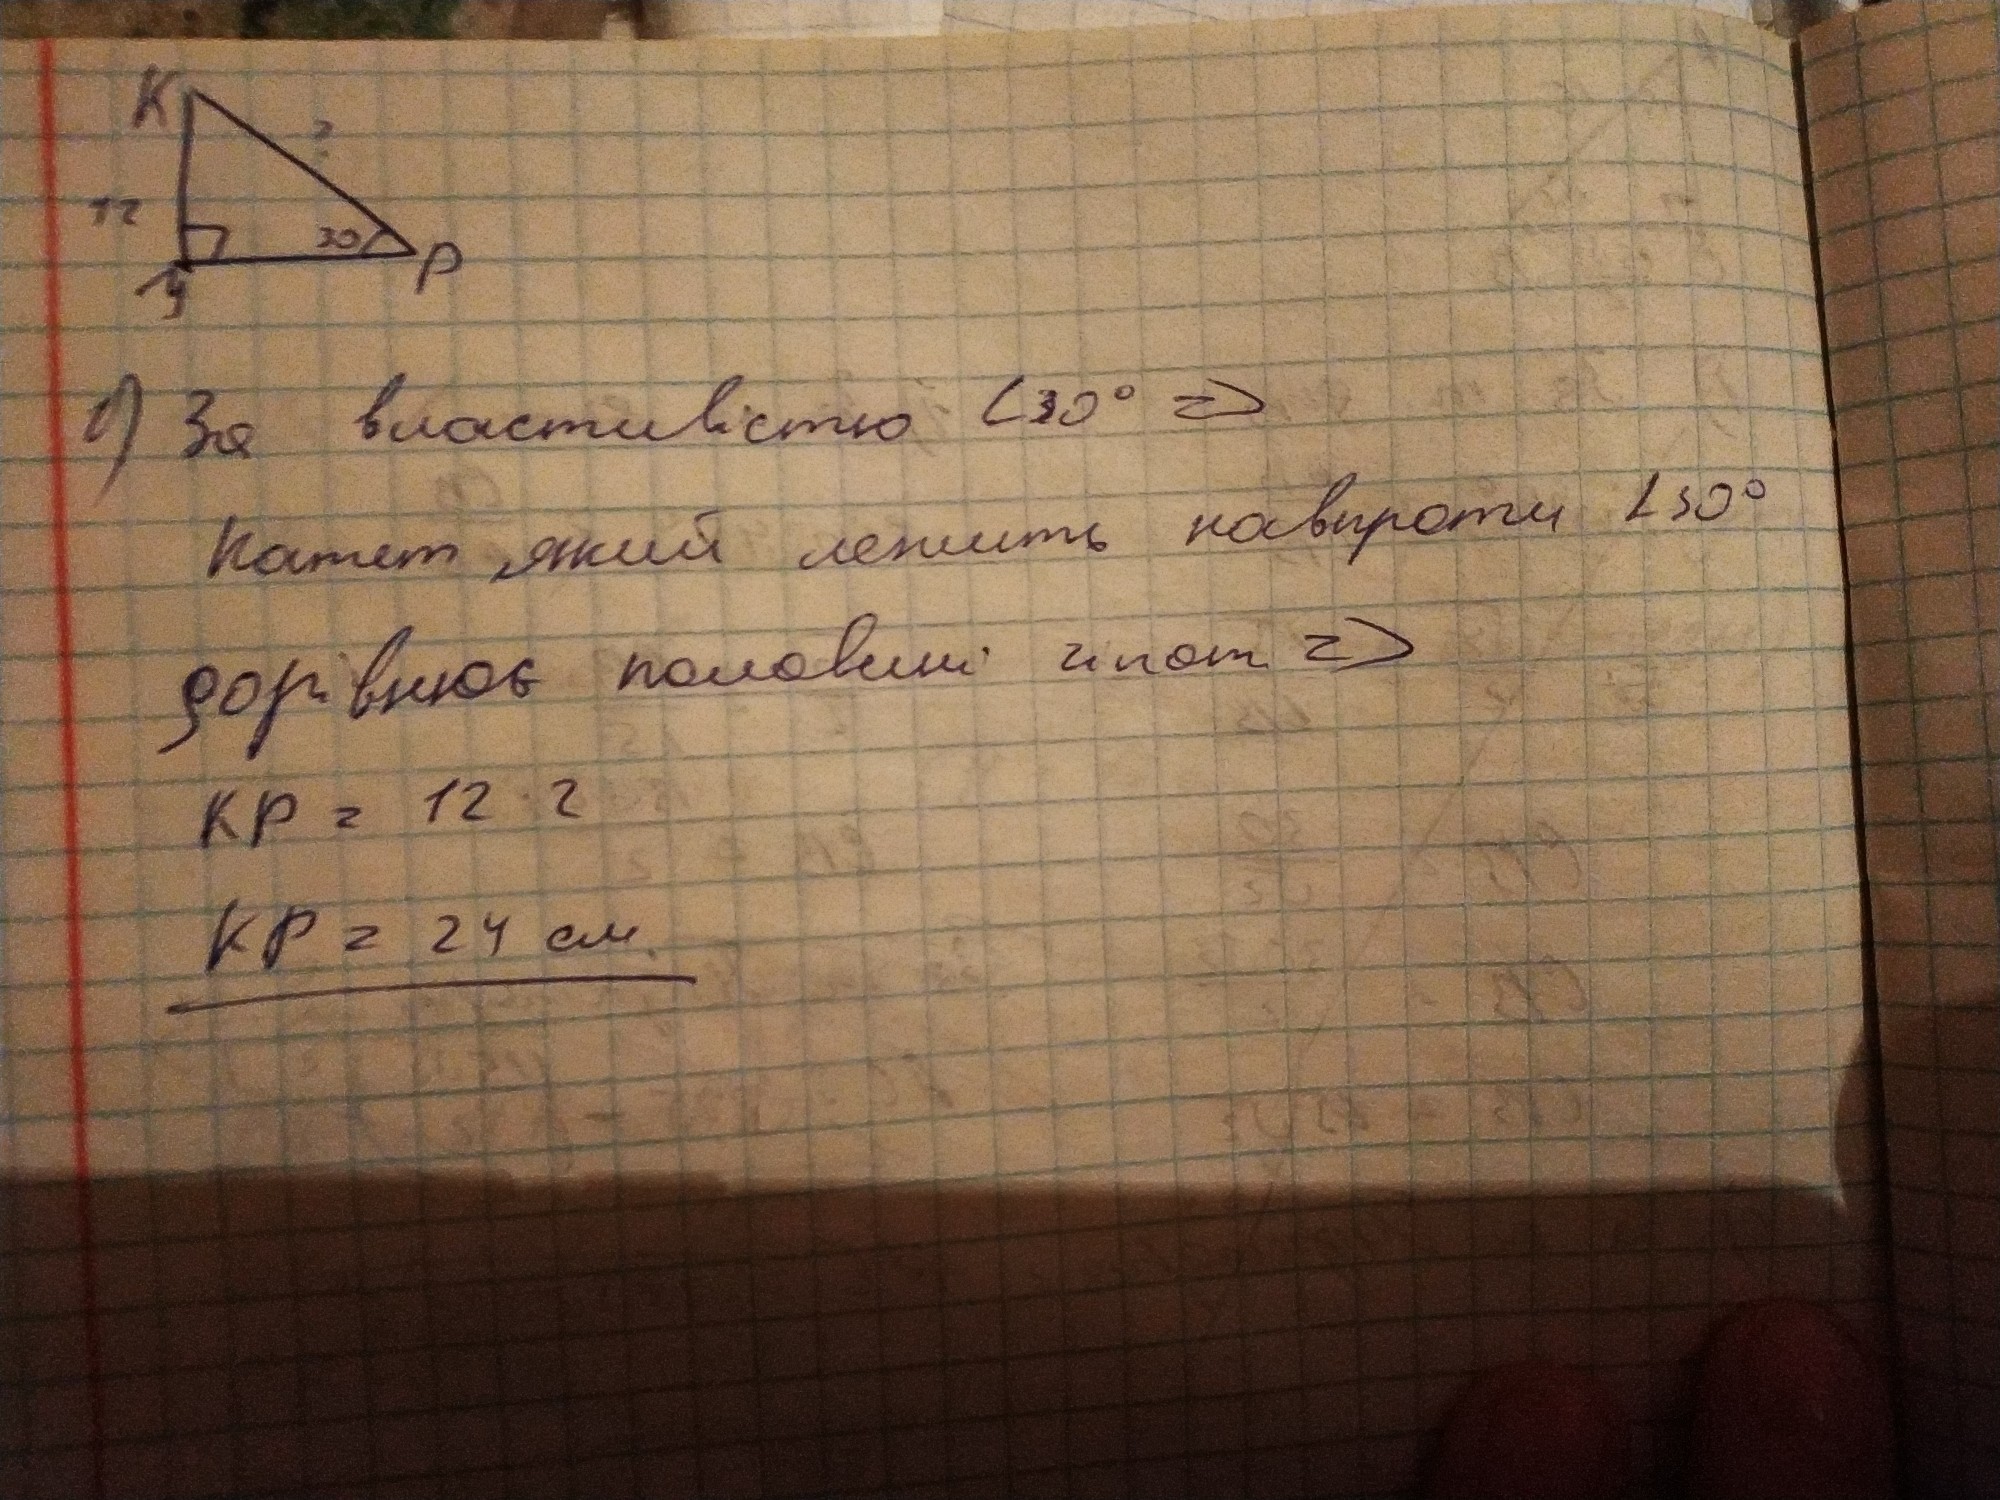 K
?
12
30
P
У
1) За властивістю ∠30° =>
Катет, який лежить навпроти ∠30°
дорівнює половині гіпот =>
KP = 12 · 2
KP = 24 см.